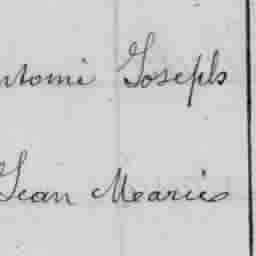 ntoni Joseph
Jean Marie